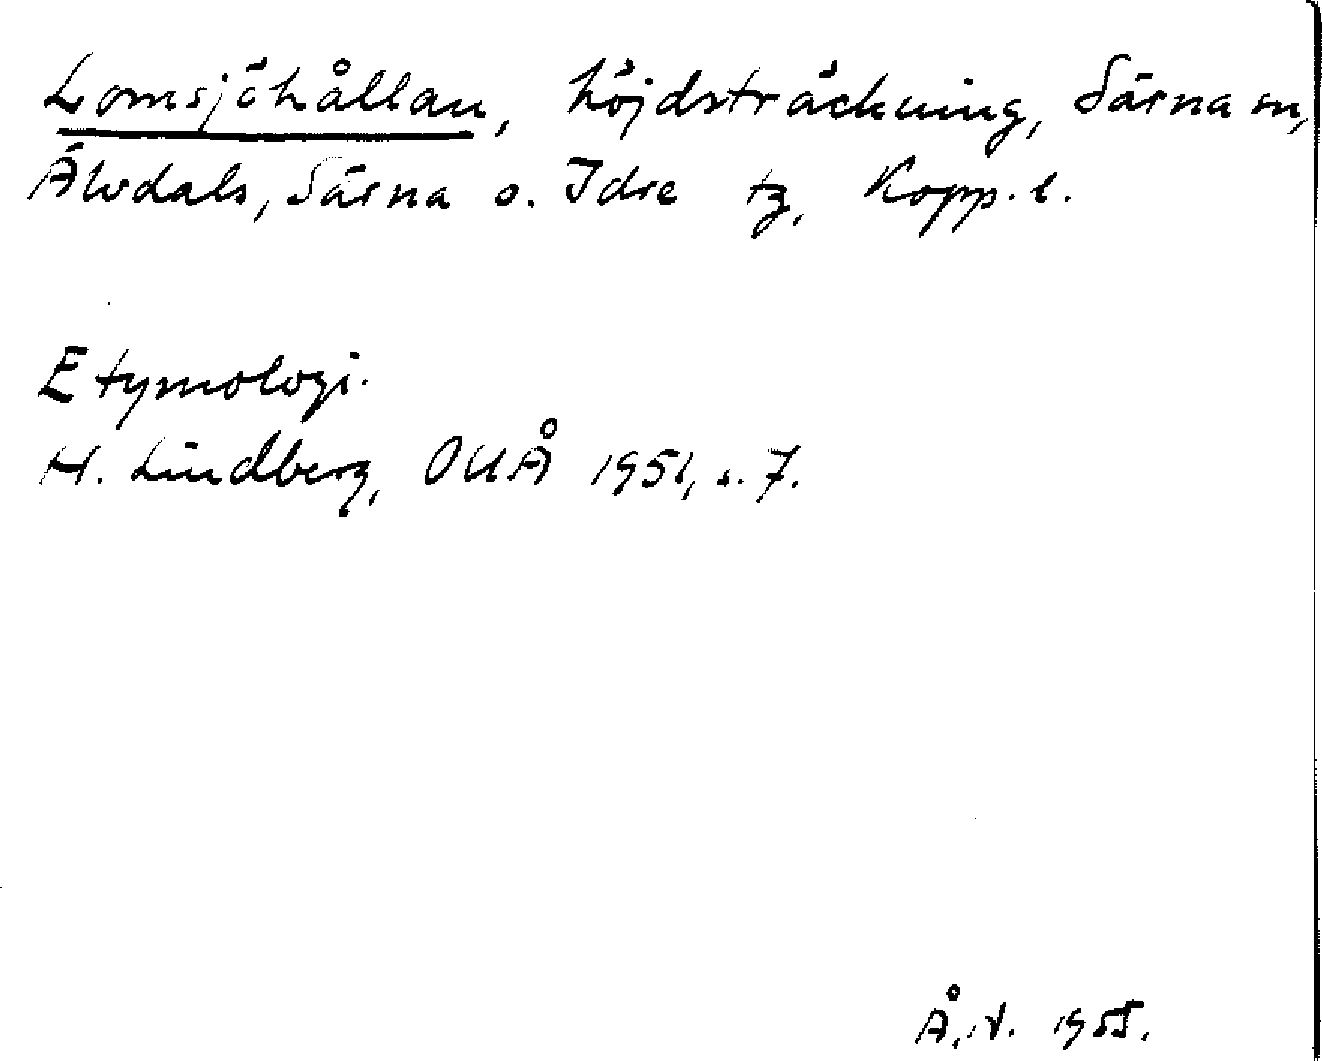 Lomsjöhållan, höjdsträckning, Särna sn,
Älvdals, Särna o. Idre tg, Kopp. l.
Etymologi.
H. Lindberg, OUÅ 1951, s. 7.
1955.